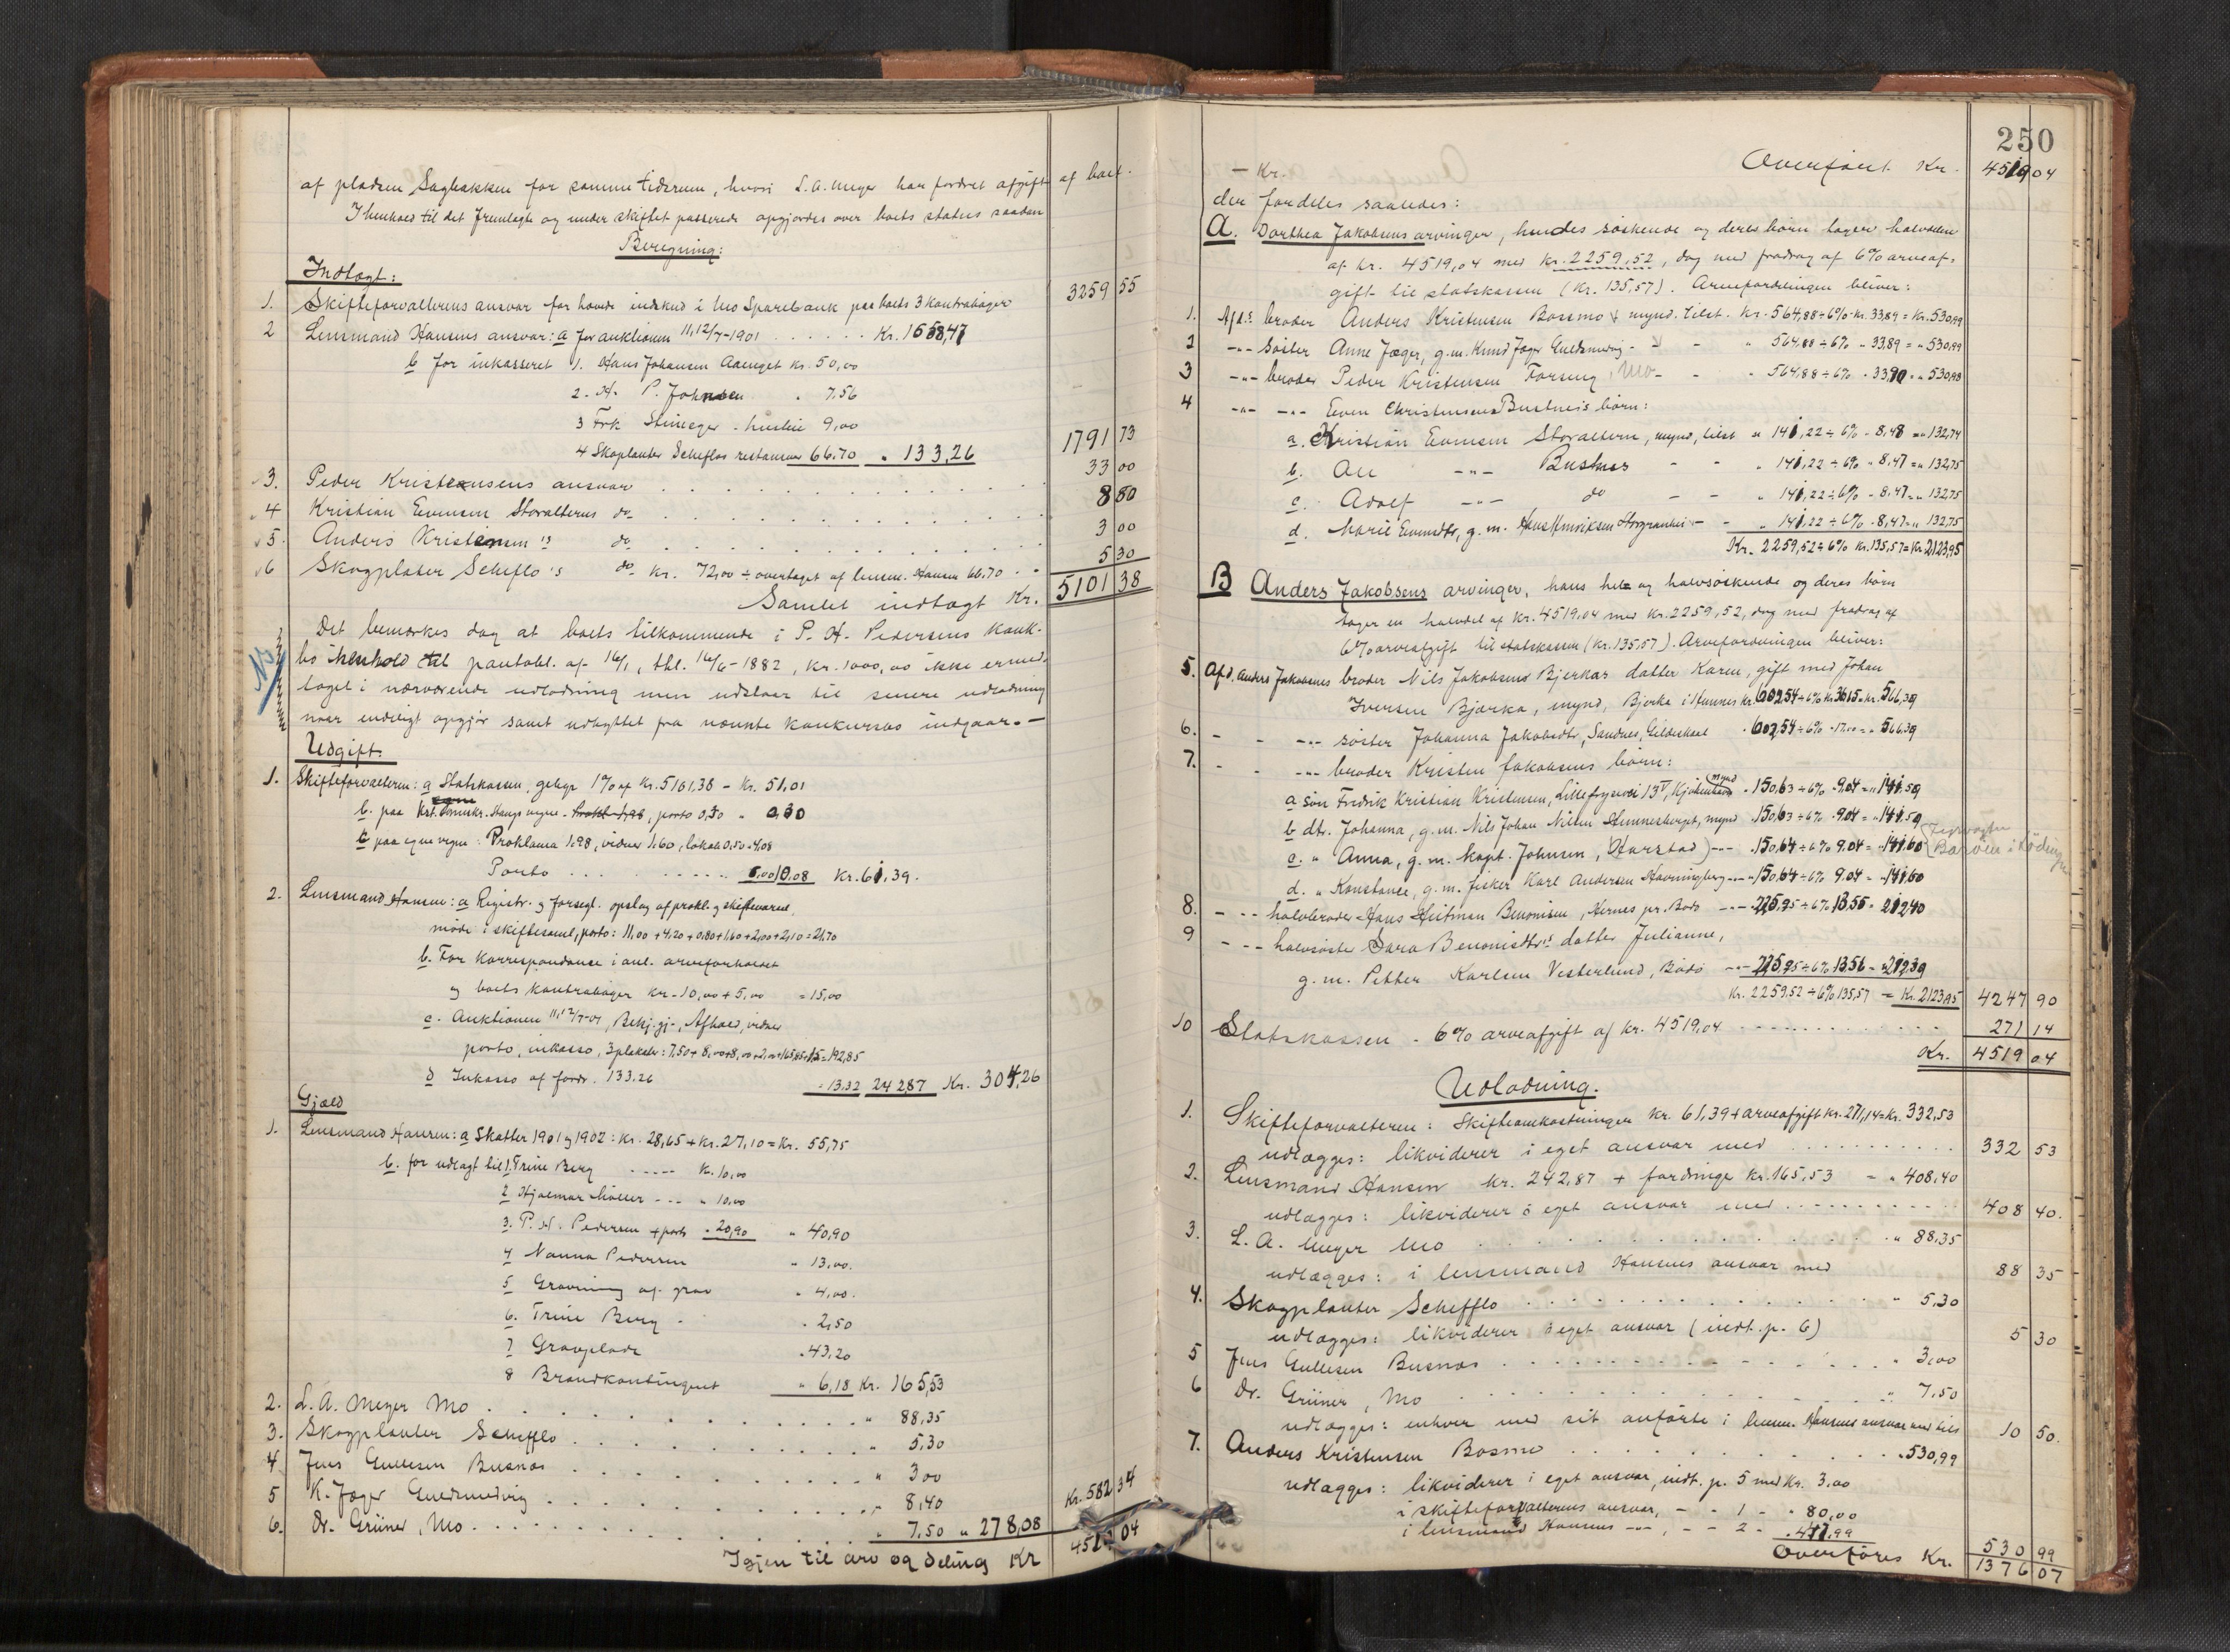 af pladsen Sagbakken for samme tidsrum, hvori L. A. Meyer har fordret afgift af boet.
I henhold til det fremlagte og under skiftet passerede opgjordes over boets status saadan
Beregning:
Indtægt:
1. Skifteforvalterens ansvar for havde indskud i Mo Sparebank paa boets 3 kontrabøger 3259 55
2 Lensmand Hansens ansvar: a for auktionen 11, 12/7-1901 . . . . . . Kr. 1658,47
b for inkasseret 1. Hans Johansen Aaenget kr. 50,00
2. H. P. Johnsen " 7.56
3 Frk Steineger - husleie 9,00
4 Skoplanter Scheflos restance 66.70 " 133,26 1791 73
3. Peder Kristensens ansvar 33 00
4 Kristian Evensen Storalterens do 8 80
5. Anders Kristensen's do 3 00
6 Skogplanter Scheflo's do kr. 72,00 ÷ overtaget af lensm. Hansen 66.70 5 30
Samlet indtægt Kr. 5101 38
Det bemærkes dog at boets tilkommende i P. H. Pedersens konk-
NB
bo i henhold til pantobl. af 16/1, thl. 16/6-1882, kr. 1000,00 ikke er med-
taget i nærværende udlodning men udstaar til senere udlodning
naar endeligt opgjør samt udbyttet fra nævnte konkursbo indgaar. —
Udgift.
1. Skifteforvalteren: a Statskassen, gebyr 1% af kr. 5101,38 - Kr. 51,01
b. paa vegne - porto 0,30 - 0,30
c paa egne vegne: Proklama 1.98, vidner 1.60, lokale 0.50 = 4.08
Porto . . . . . . . . . 6,00 10.08 Kr. 61,39.
2. Lensmand Hansen: a Registr. og forsegl. opslag af prokl. og skiftevarsel,
møde i skiftesaml, porto: 11,00 + 4.20 + 0.80 + 1.60 + 2,00 + 2,10 = 21.70
b. For korrespondance i anl. arveforholdet
og boets kontrabøger kr. 10,00 + 5,00 = 15,00
c. Auktionen 11, 12/7-01, Bekj.gj-, Afhold, vidner
porto, inkasso, 3 plakater: = 192,85
d Inkasso af fordr. 133.26 - 13.32 242,87 Kr. 304,26
Gjæld
1. Lensmand Hansen: a Skatter 1901 og 1902: kr. 28,65 + kr. 27,10 = Kr. 55,75
b. for udlagt til 1. Trine Berg - - - - - Kr. 10,00
2 Hjalmar Møller - - - " 10,00
3. P. H. Pedersen + porto - 20,90 " 40,90
4 Nanna Pedersen " 13,00.
5 Gravning af grav " 4,00.
6. Trine Berg " 2,50
7 Gravplade " 43,20
8 Brandkontingent " 6,18 Kr. 165,53
2. L. A. Meyer Mo " 88,35
3. Skogplanter Schefflo " 5,30
4 Jens Gullesen Busnæs " 3 00
5 K. Jæger Guldsmedvig " 8,40
6. Dr. Grüner, Mo " 7.50 " 278,08 Kr. 582,34
Igjen til arv og deling Kr 04
250
— Kr. Overført Kr. 4519 04
der fordeles saaledes:
A. Dorthea Jakobsens arvinger, hendes søskende og deres børn tager halvdelen
af kr. 4519,04 med kr. 2259,52, dog med fradrag af 6% arveaf-
gift til statskassen (kr. 135,57). Arvefordelingen bliver:
1. Afd.s broder Anders Kristensen Bossmo mynd. tilst. kr. 564,88 ÷ 6% kr. 33,89 = Kr. 530,99
2 -"- søster Anne Jæger, g.m. Knud Jæger Guldsmedvig - - " 564.88 ÷ 6% " 33,89 = " 530,99
3 -"- broder Peder Kristensen Forseng Mo - - " 564,88 ÷ 6% " 33,90 = " 530,98
4 -"- -"- Even Christensens Bustneis børn:
a. Kristian Evensen Storaltern, mynd, tilst " 141,22 ÷ 6% - 8,48 = " 132,74
b. An -"- Bustnes - - " 141,22 ÷ 6% " 8.47 = " 132,75
c. Adolf -"- do - - " 141,22 ÷ 6% - 8,47 = " 132,75
d. Marie Evensdtr, g. m. Hans Henriksen Storgranhei - - " 141,22 ÷ 6% - 8,47 = " 132,75
Kr. 2259,52 ÷ 6% kr. 135,57 = Kr 2123,95
B Anders Jakobsens arvinger, hans hel- og halvsøskende og deres børn
tager en halvdel af kr. 4519,04 med kr. 2259,52, dog med fradrag af
6% arveafgift til statskassen (kr. 135,57). Arvefordelingen bliver:
5. Afd. Anders Jakobsens broder Nils Jakobsens Bjerkas datter Karen, gift med Johan
Iversen Bjærka, mynd, Bjerka i Hemnes kr. 602,54 ÷ 6% kr. 36.15 = kr. 566,39
6. - - -"- søster Johanna Jakobsdtr, Sandnes, Gildeskaal - 602,54 ÷ 6% = " 566.39
7. - - -"- broder Kristen Jakobsens børn:
a. søn Fredrik Kristian Kristensen, 13 V, Kjøbenhavn mynd - 150.63 ÷ 6% - 9.04 = " 141.59
b dtr. Johanna, g.m. Nils Johan Nilsen Hemnesberget, mynd - 150,63 ÷ 6% - 9.04 = " 141.59
c. " Anna, g. m. kapt. Johnsen, (Harstad) -"- . 150,64 ÷ 6% 9.04 = " 141,60 Barøen i Lødingen
d. " Konstance, g.m. fisker Karl Andersen Havningberg -"- 150,64 ÷ 6% 9.04 = " 141,60
8. - -"- halvbroder Hans Heitman Benonisen, Hernes pr. Bodø -"- 225,95 ÷ 6% 13,55 = 212,40
9 - -"- halvsøster Sara Benonisdtr's datter Julianne,
g. m. Petter Karlsen Vesterlund, Bodø -"- 225,95 ÷ 6% 13,56 = " 212,39
Kr. 2259,52 ÷ 6% 135,57 = Kr. 2123,95 4247 90
10 Statskassen - 6% arveafgift af kr. 4519,04 271 14
Kr. 4519 04
Udlodning.
1. Skifteforvalteren: Skifteomkostninger kr. 61,39 + arveafgift kr. 271,14 = Kr. 332,53
udlægges: likviderer i eget ansvar med 332 53
2. Lensmand Hansen kr. 242,87 + fordringe kr. 165,53 = " 408,40
udlægges: likviderer i eget ansvar med 408 40.
3. L. A. Meyer Mo " 88,35
udlægges: i lensmand Hansens ansvar med 88 35
4. Skogplanter Schefflo " 5,30
udlægges: likviderer i eget ansvar (indt. p. 6) 5 30
5 Jens Gullesen Busnæs " 3,00
6 Dr. Grüner, Mo " 7.50
udlægges: enhver med sit anførte i lensm. Hansens ansvar med tils 10 50.
7. Anders Kristensen Bosmo " 530,99
udlægges: likviderer i eget ansvar, indt. p. 5 med Kr. 3,00
i skifteforvalterens ansvar, - - 1 - " 80,00
i lensmand Hansens -"-, - - 2 - " 447,99 530 99
Overføres Kr. 1376 07